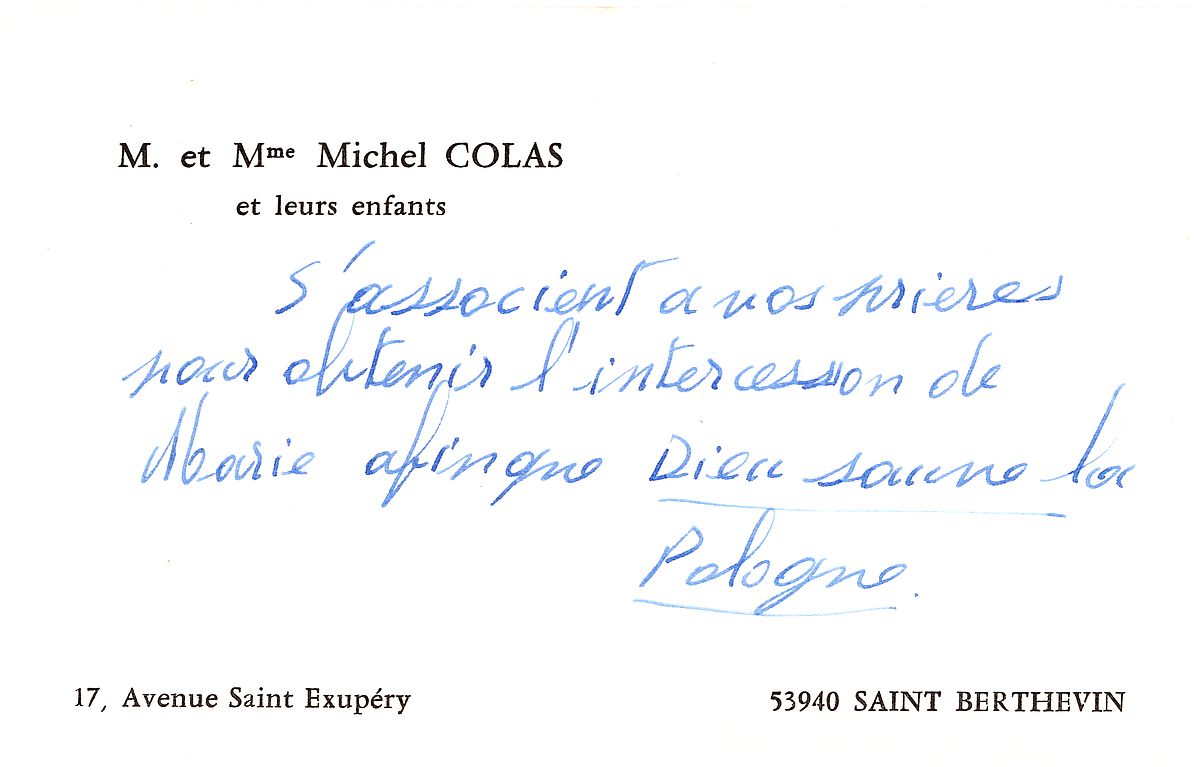 M. et Mme Michel COLAS
et leurs enfants
S'associent a vos prieres
pour obtenir l'intercesson de
Marie afinque Dieu sauve la
Pologne.
17, Avenue Saint Exupéry 53940 SAINT BERTHEVIN